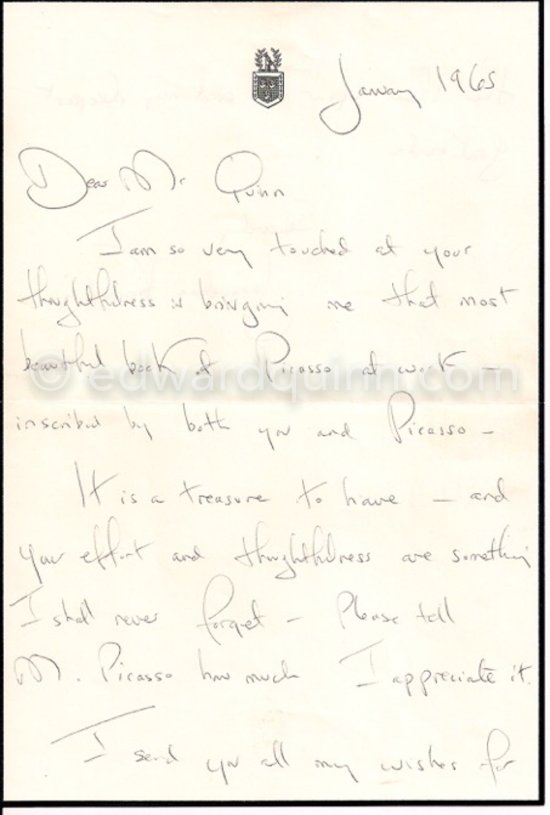 January 1965
Dear Mr Quinn
I am so very touched at your
thoughtfulness in bringing me that most
beautiful book of Picasso at work –
© edwardquinn.com
inscribed by both you and Picasso –
It is a treasure to have – and
your effort and thoughtfulness are something
I shall never forget – Please tell
M. Picasso how much I appreciate it.
I send you all my wishes for